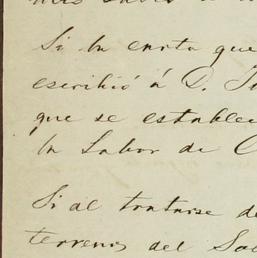 Si la carta que
escribió á D. 
que se estable
la Labor de C
Si al tratarse de
terrenos del Sal